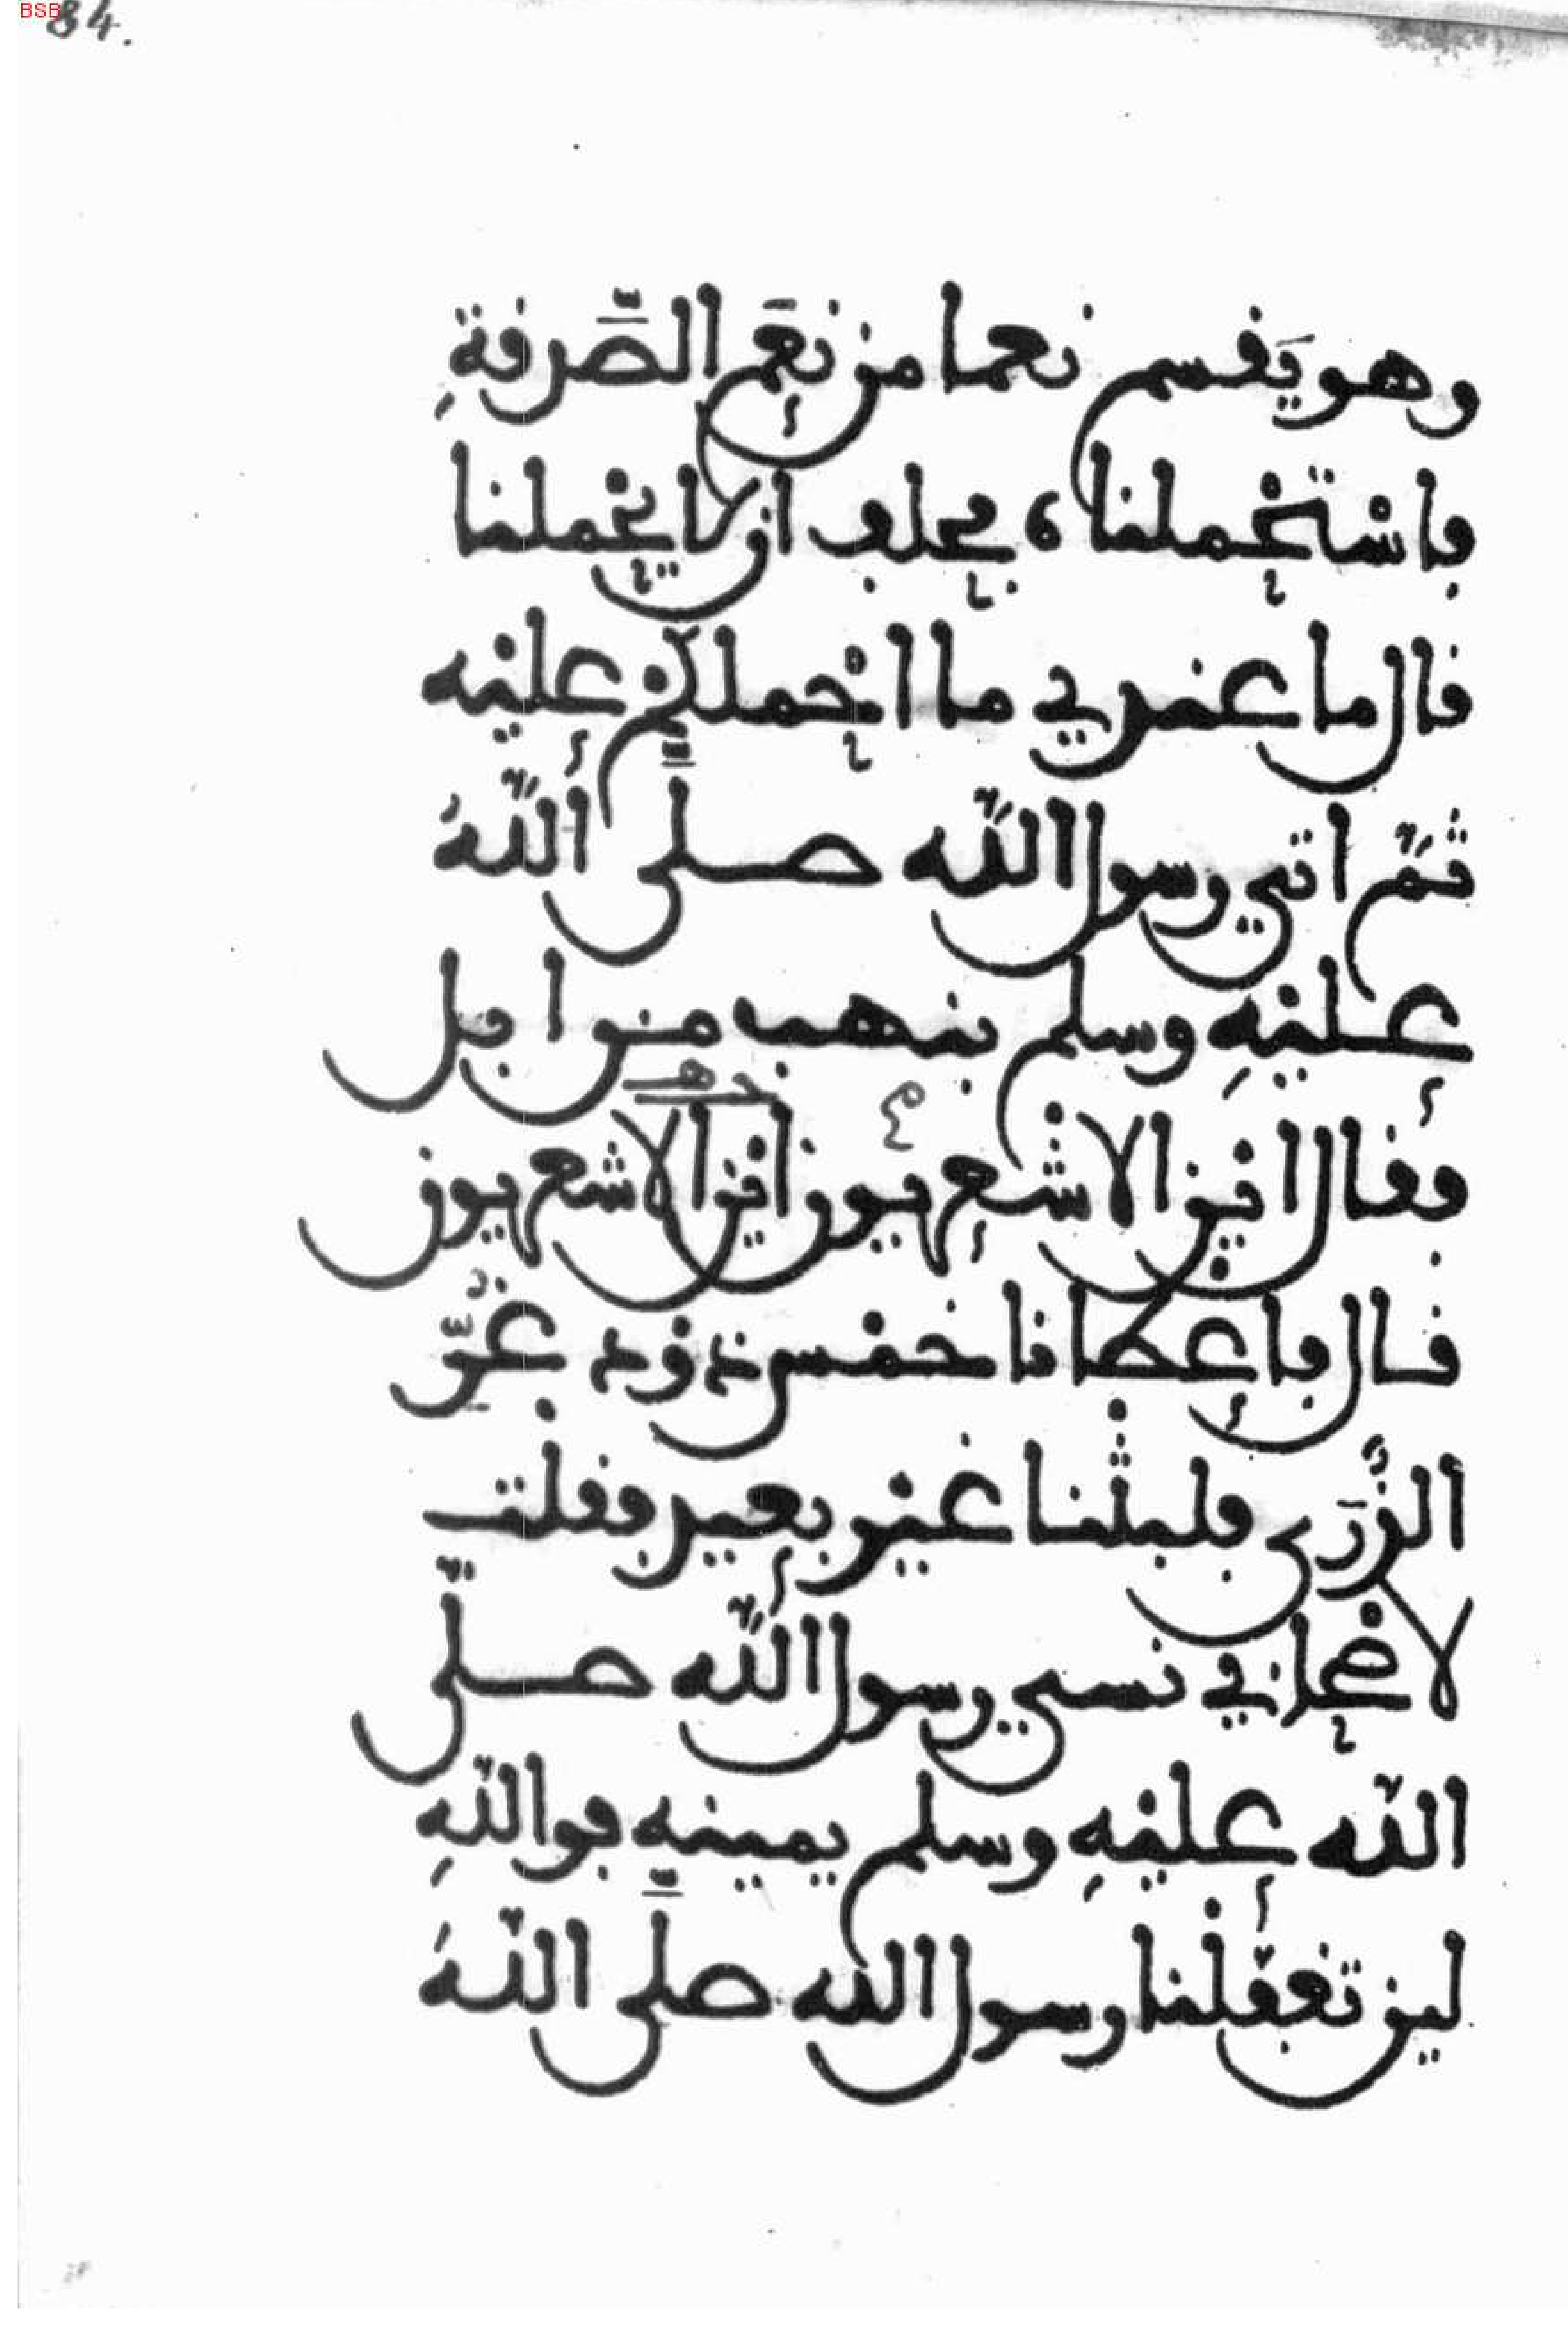 84.
BSB
وهو يَقسم نعما من نَعَمِ الصَّدقةِ
فاسْتحْملناه فحلف ان لا يحْملنا
قال ما عندي ما احْملكم عليْه
ثمّ اتي رسول اللّه صلّى اللّهُ
عليْهِ وسلم بنهب من ابل
فقال ايْن الاشْعريون ايْن الاشعريون
قال فاعطانا خمْس ذوْد غُرّ
الذُّرَى فلبثْنا غيْر بعيد فقلْت
لاصْحابي نسي رسول اللّه صلّى
اللّه عليْهِ وسلم يمينه فواللّهِ
لين تغفّلْنا رسول اللّه صلّى اللّهُ